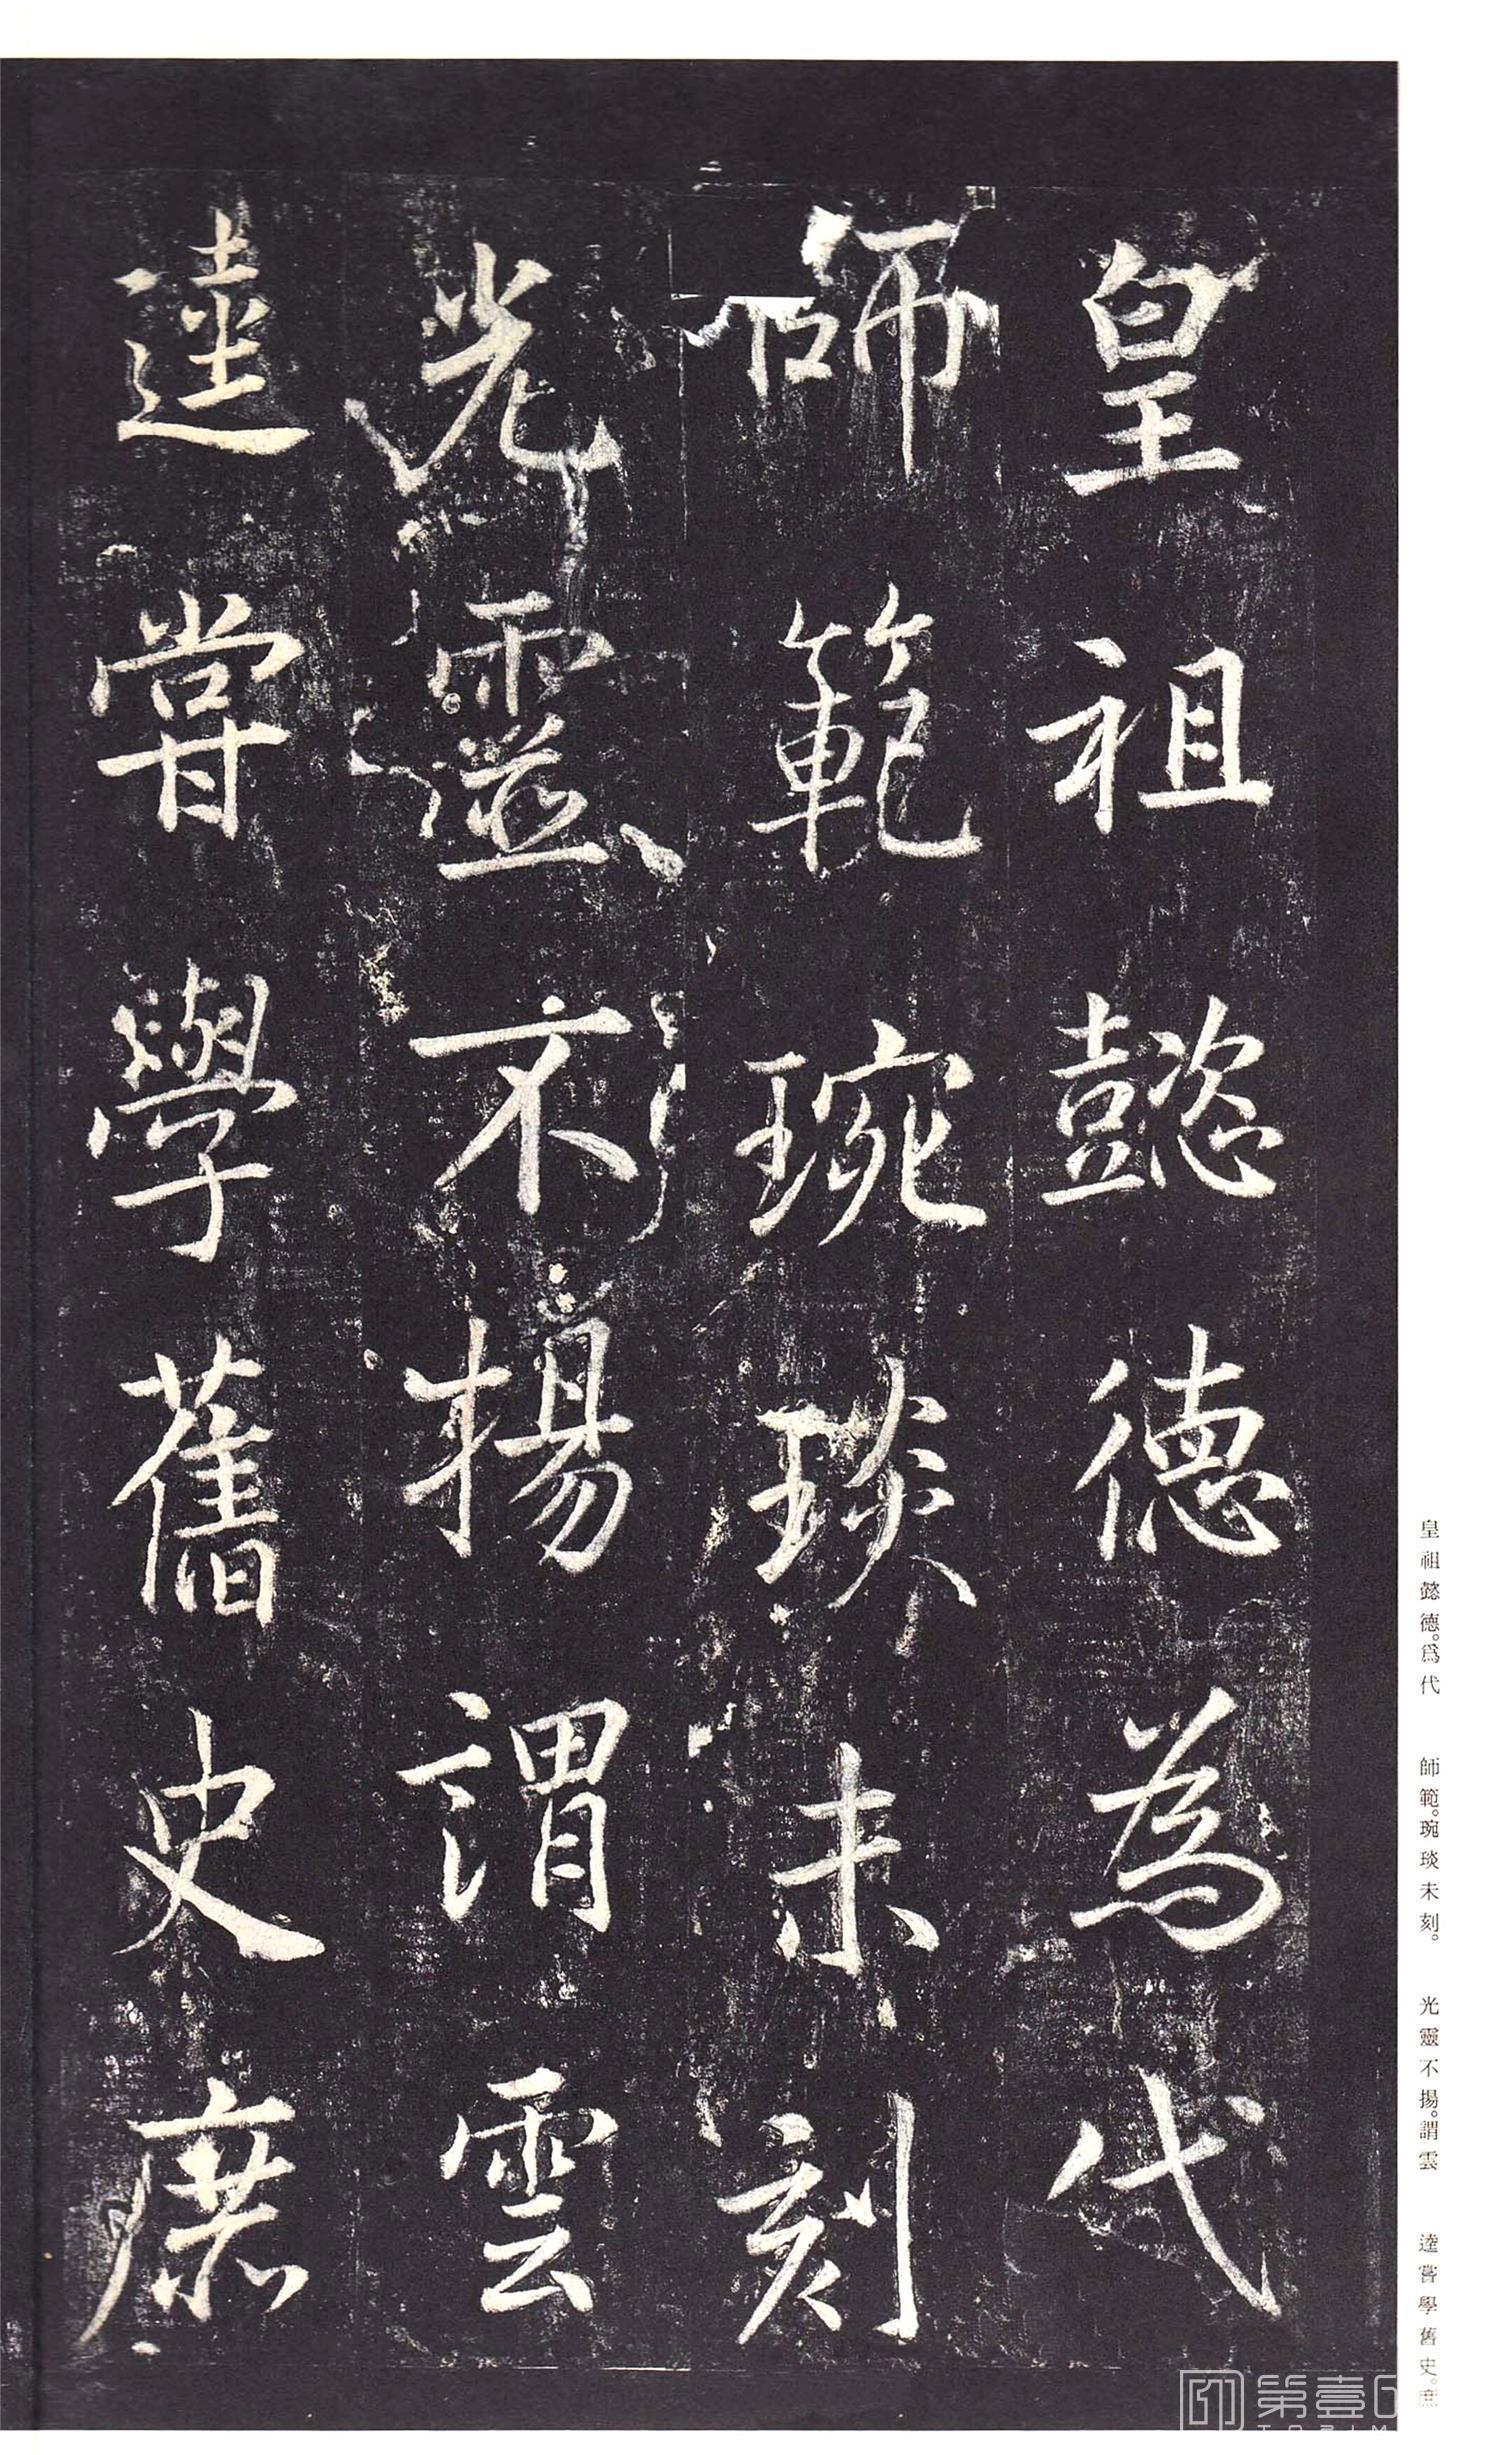 皇祖懿德為代
師範琬琰未刻
光靈不揚謂雲
逵甞學舊史庶
皇祖懿德。爲代　師範。琬琰未刻。　光靈不揚。謂雲　逵嘗學舊史。庶
第壹